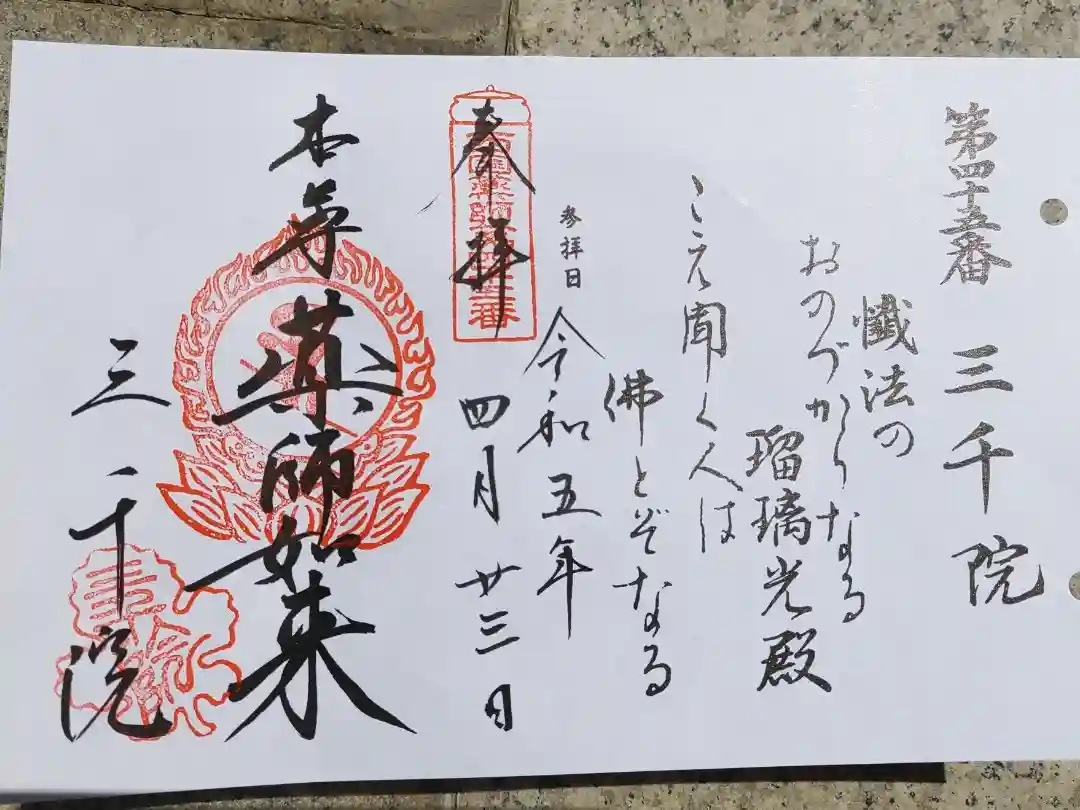 第四十五番 三千院
懺法の
おのづからなる
瑠璃光殿
こえ聞く人は
佛とぞなる
参拝日 令和五年
四月廿三日
奉拝
西國薬師第四十五番
本尊 薬師如来
三千院